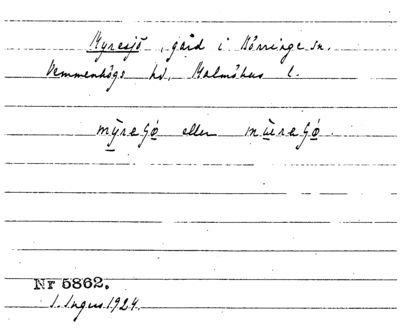 Myresjö, gård i Börringe sn.
Vemmenhögs hd, Malmöhus l.
mýreſó eller mùreſó
Nr 5862.
I. Ingers 1924.